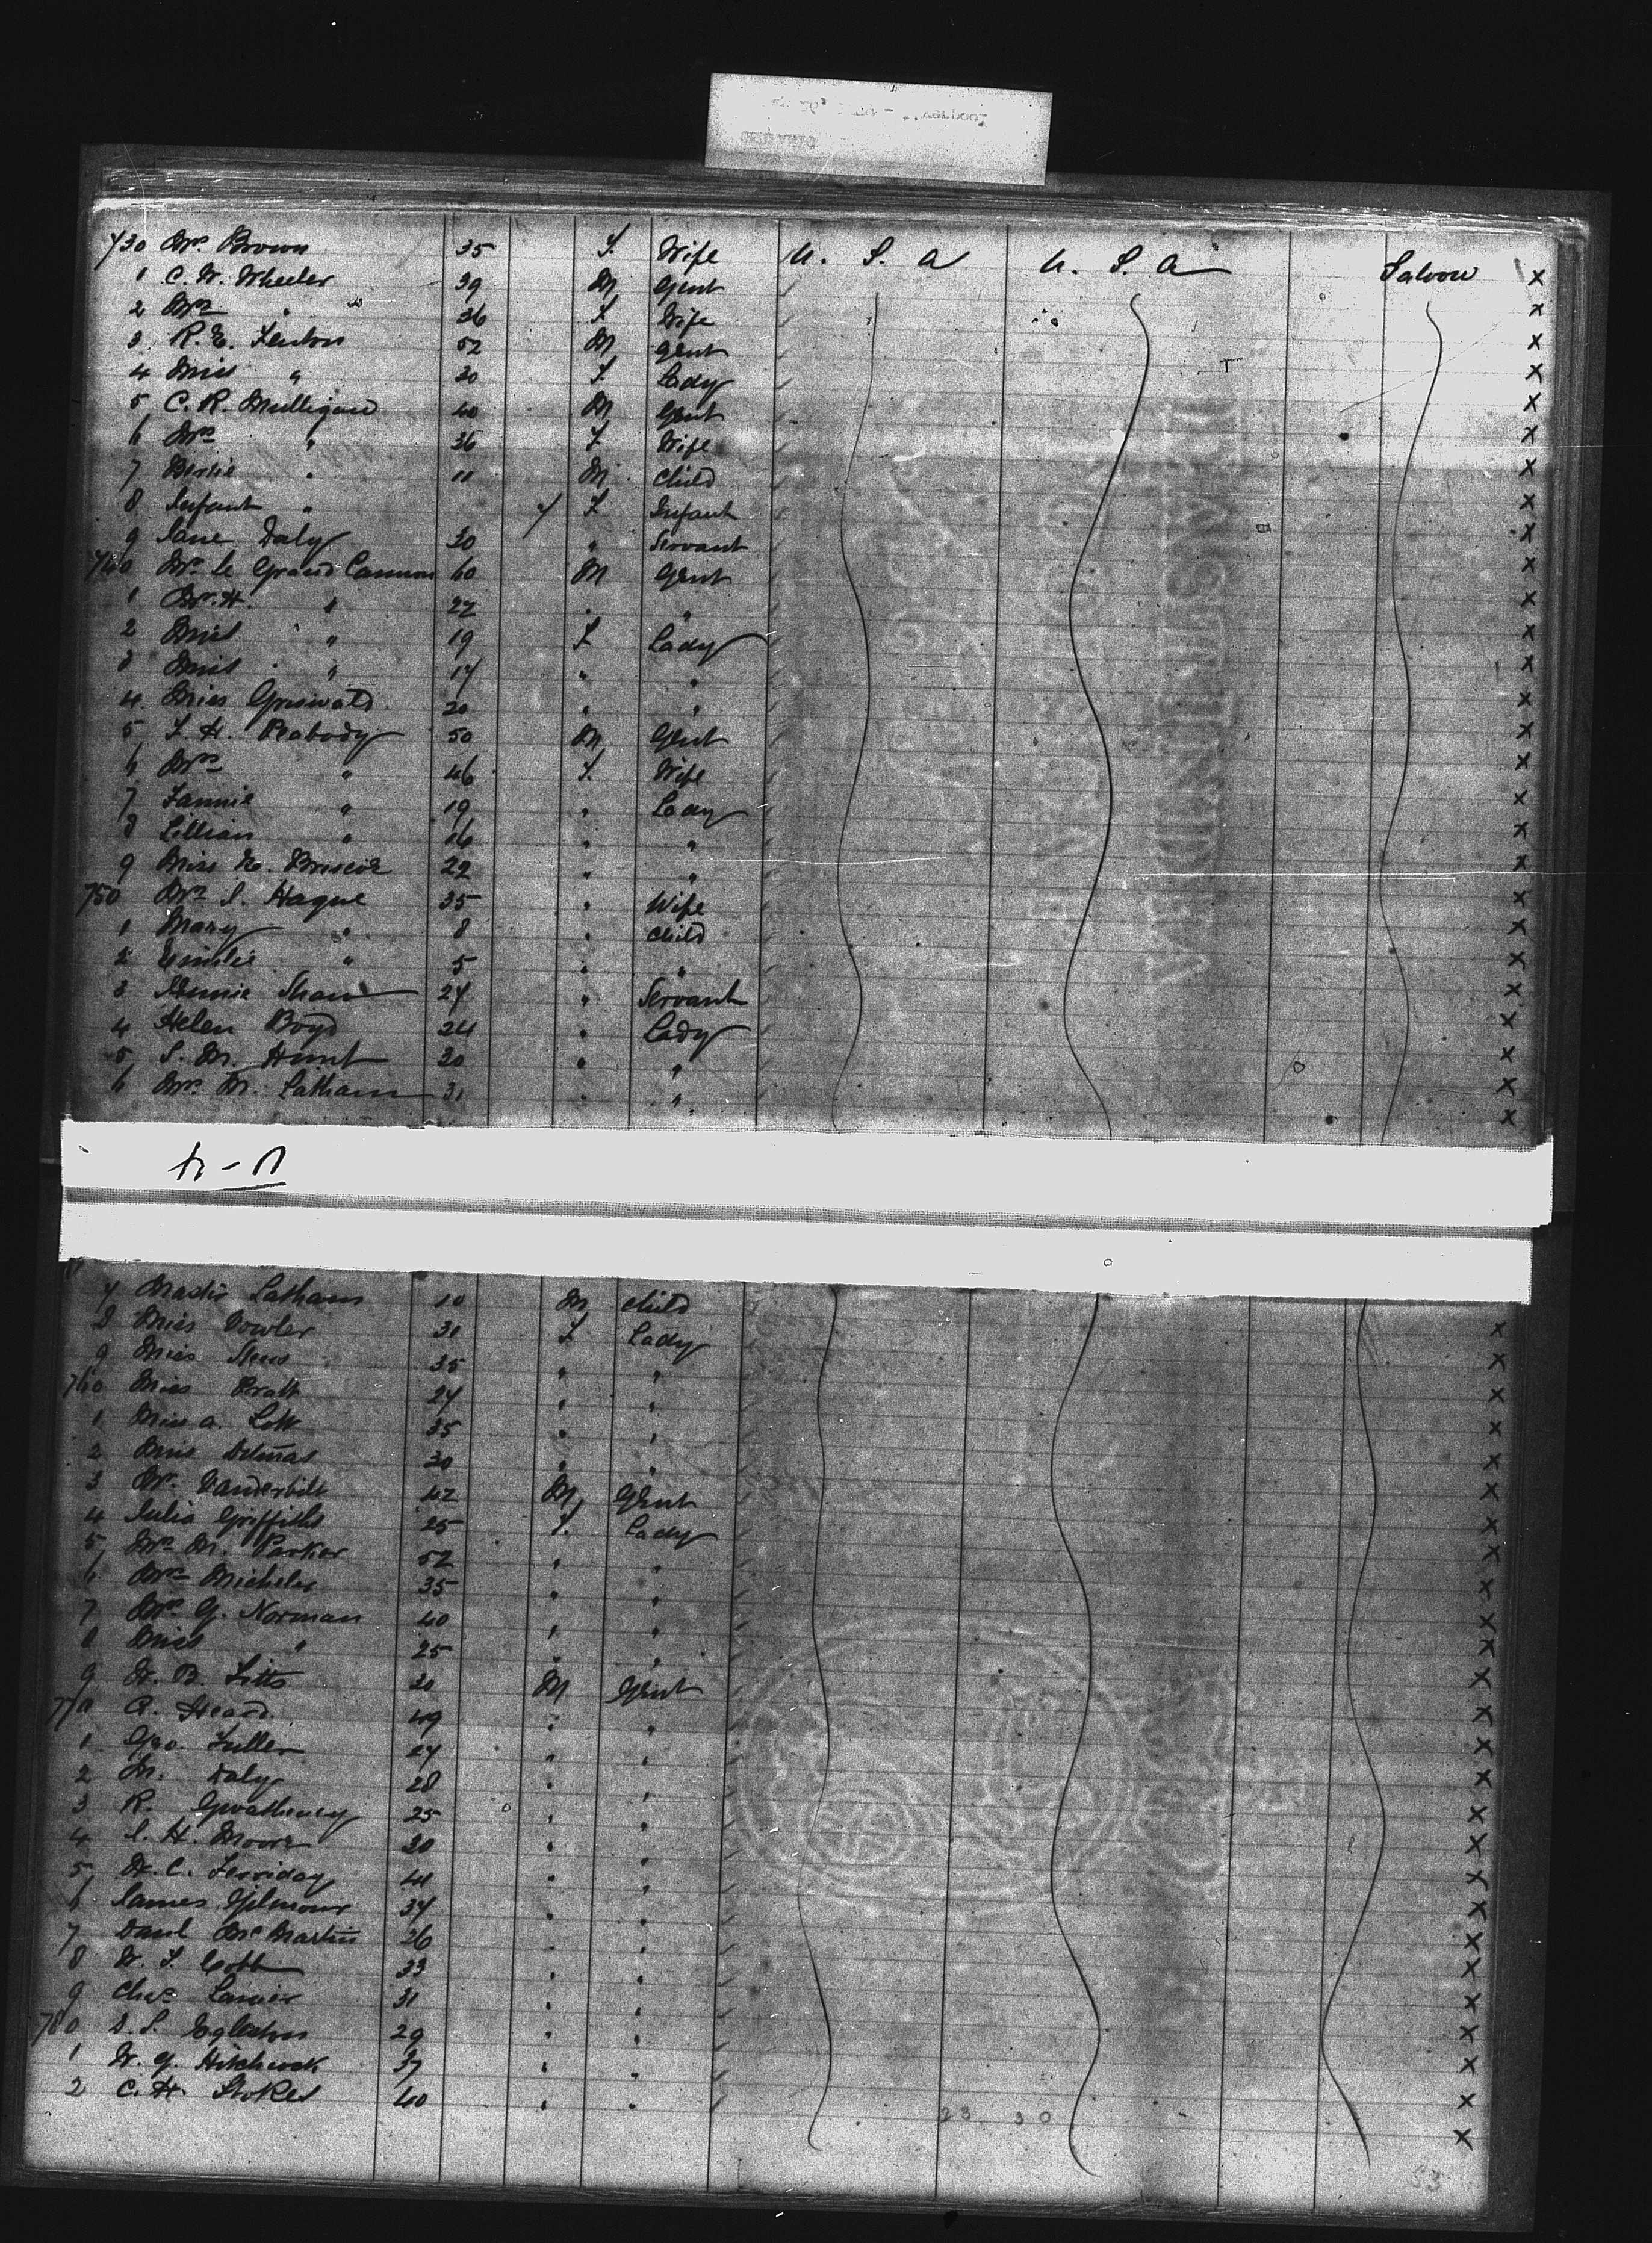 730 Mrs Brown 35 F. Wife U. S. A U. S. A Saloon X
1 C. W. Wheeler 39 M Gent X
2 Mrs " 36 F. Wife X
3 R. E. Fenton 52 M Gent X
4 Miss " 20 F. Lady X
5 C. R. Mulligan 40 M Gent X
6 Mrs " 36 F. Wife X
7 11 M Child X
8 Infant " F Infant X
9 Jane Daly 30 " Servant X
740 Mr. le Grand Cannon 60 M Gent X
1 Mr. H. " 22 " " X
2 Miss " 19 F Lady X
3 Miss " 17 " " X
4 Miss Griswold 20 " " X
5 F. H. Peabody 50 M Gent X
6 Mrs " 46 F. Wife X
7 Fannie " 19 " Lady X
8 Lillian " 16 " " X
9 Miss Briscoe 22 " " X
750 Mrs J. Hague 35 " Wife X
1 Mary " 8 " Child X
2 Emilie " 5 " " X
3 Annie Shaw 24 " Servant X
4 Helen Boyd 24 " Lady X
5 S. M. Hunt 20 " " X
6 Mrs. M. Latham 31 " " X
7 Mastr Latham 10 M Child X
8 Miss Fowler 31 F. Lady X
9 Miss 35 " " X
760 Miss Pratt 24 " " X
1 Miss A. Lott 35 " " X
2 Miss 30 " " X
3 Mr. Vanderbilt 42 M Gent X
4 Julia Griffiths 25 F. Lady X
5 Mrs M. Parker 52 " " X
6 Mrs 35 " " X
7 Mrs. G. Norman 40 " " X
8 Miss " 25 " " X
9 30 M Gent X
770 A. Heard 49 " " X
1 Geo. Fuller 27 " " X
2 M. Daly 28 " " X
3 R. Gwathmey 25 " " X
4 S. H. Moore 30 " " X
5 W. C. Ferriday 41 " " X
6 James Gilmour 34 " " X
7 Danl McMartin 26 " " X
8 W. S. Cobb 33 " " X
9 Chas Lanier 31 " " X
780 D. S. Egleston 29 " " X
1 W. G. Hitchcock 37 " " X
2 C. H. Stokes 40 " " X
23 30
53